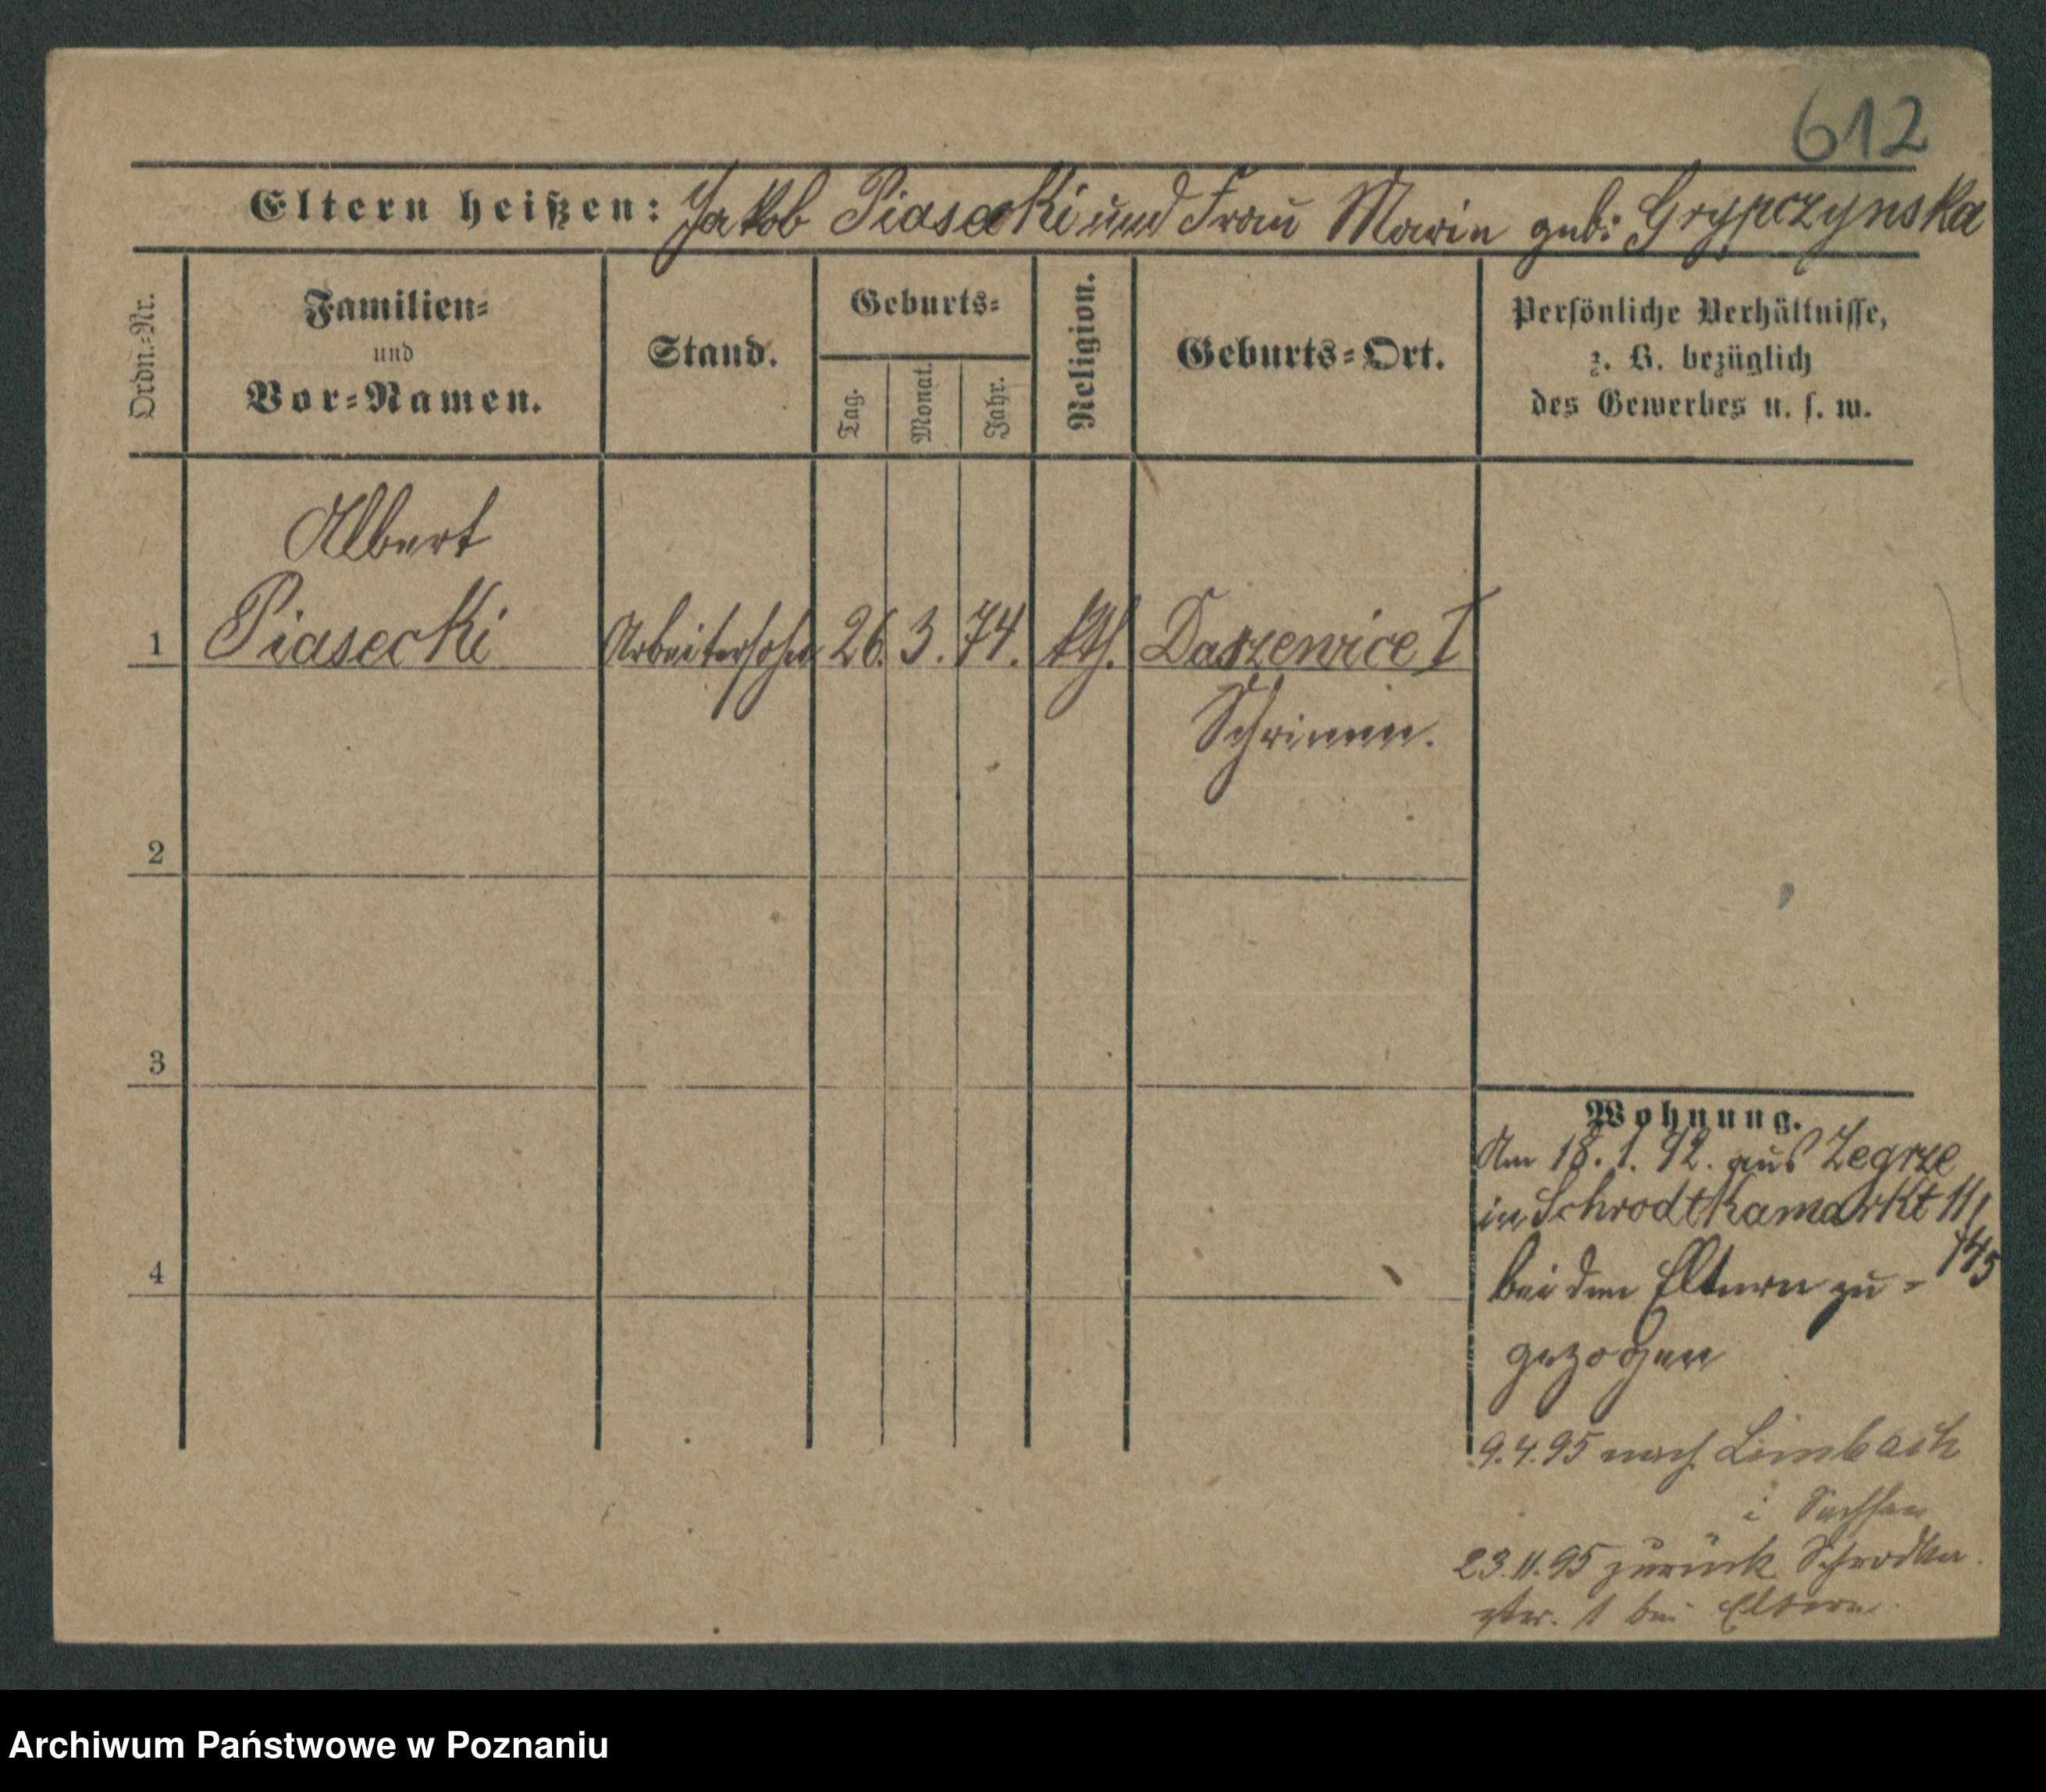 612
Eltern heißen: Jakob Piasecki und Frau Marie geb: Grypczynska
Ordn.-Nr.
Familien-
und
Vor-Namen.
Stand.
Geburts-
Tag.
Monat.
Jahr.
Religion.
Geburts-Ort.
Persönliche Verhältnisse,
z. B. bezüglich
des Gewerbes u. s. w.
Albert
1 Piasecki Arbeitersohn 26. 3. 74. kth. Daszewice
Schrimm.
2
3
4
Wohnung.
Am 18. 1. 92. aus Zegrze
in Schrodtkamarkt 11/
145
bei den Eltern zu-
gezogen
9.4.95 nach Limbach
i Sachsen
23.11.95 zurück Schrodka
1 bei Eltern.
Archiwum Państwowe w Poznaniu